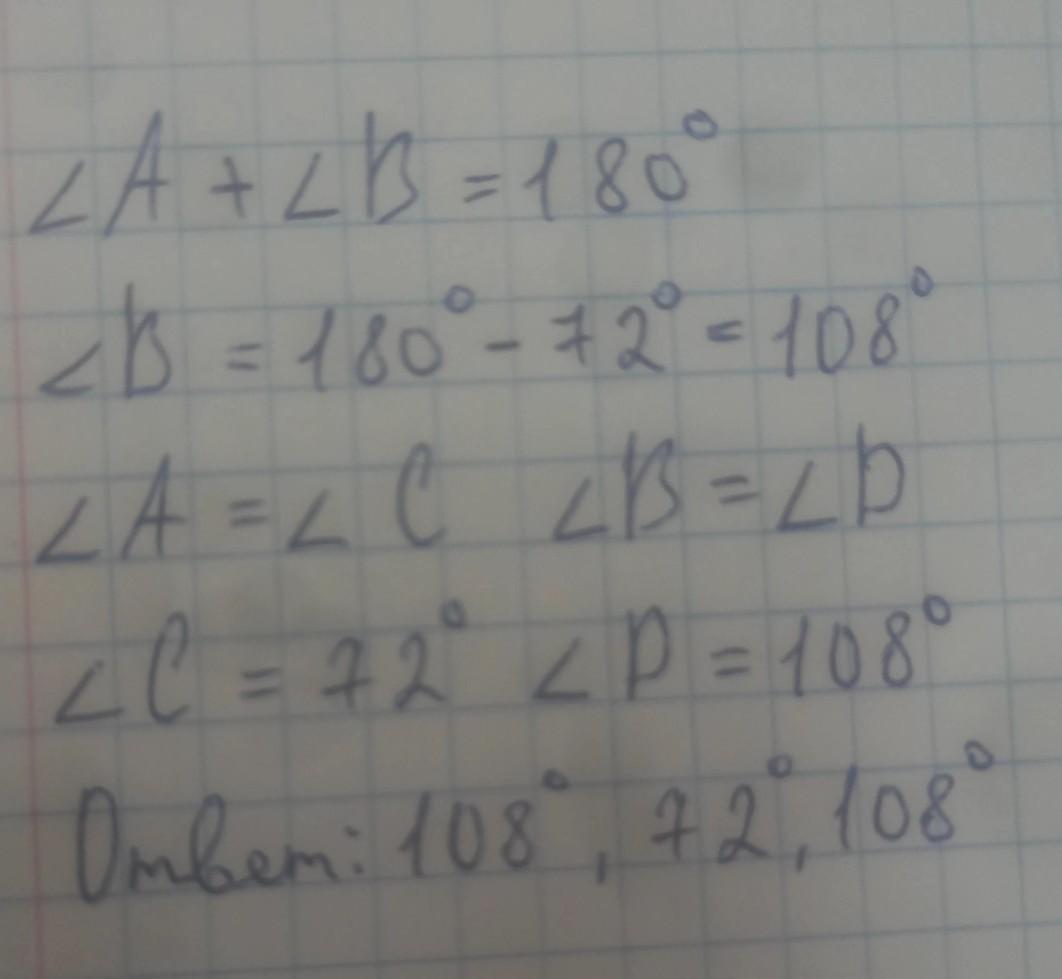 ∠A + ∠B = 180°
∠B = 180° - 72° = 108°
∠A = ∠C ∠B = ∠D
∠C = 72° ∠D = 108°
Ответ: 108°, 72°, 108°